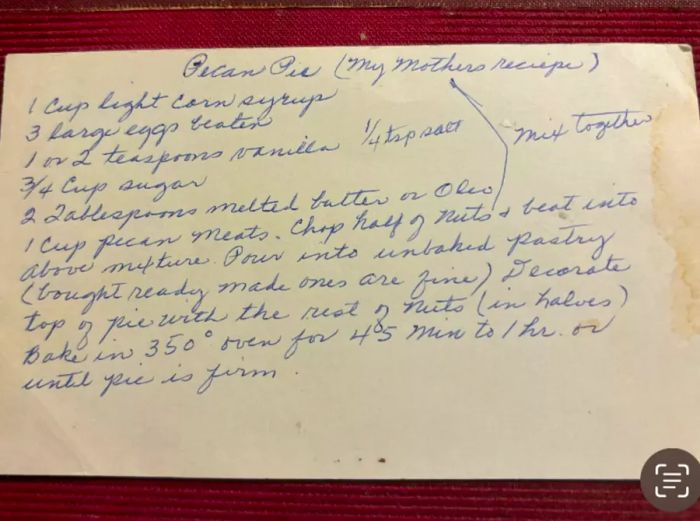 Pecan Pie (My Mothers reciepe)
1 Cup light corn syrup
3 large eggs beaten
1 or 2 teaspoons vanilla 1/4 tsp salt mix together
3/4 Cup sugar
2 Tablespoons melted butter or Oleo
1 Cup pecan meats. Chop half of nuts & beat into
above mixture. Pour into unbaked pastry
(bought ready made ones are fine) Decorate
top of pie with the rest of nuts (in halves)
Bake in 350° oven for 45 min to 1 hr. or
until pie is firm.